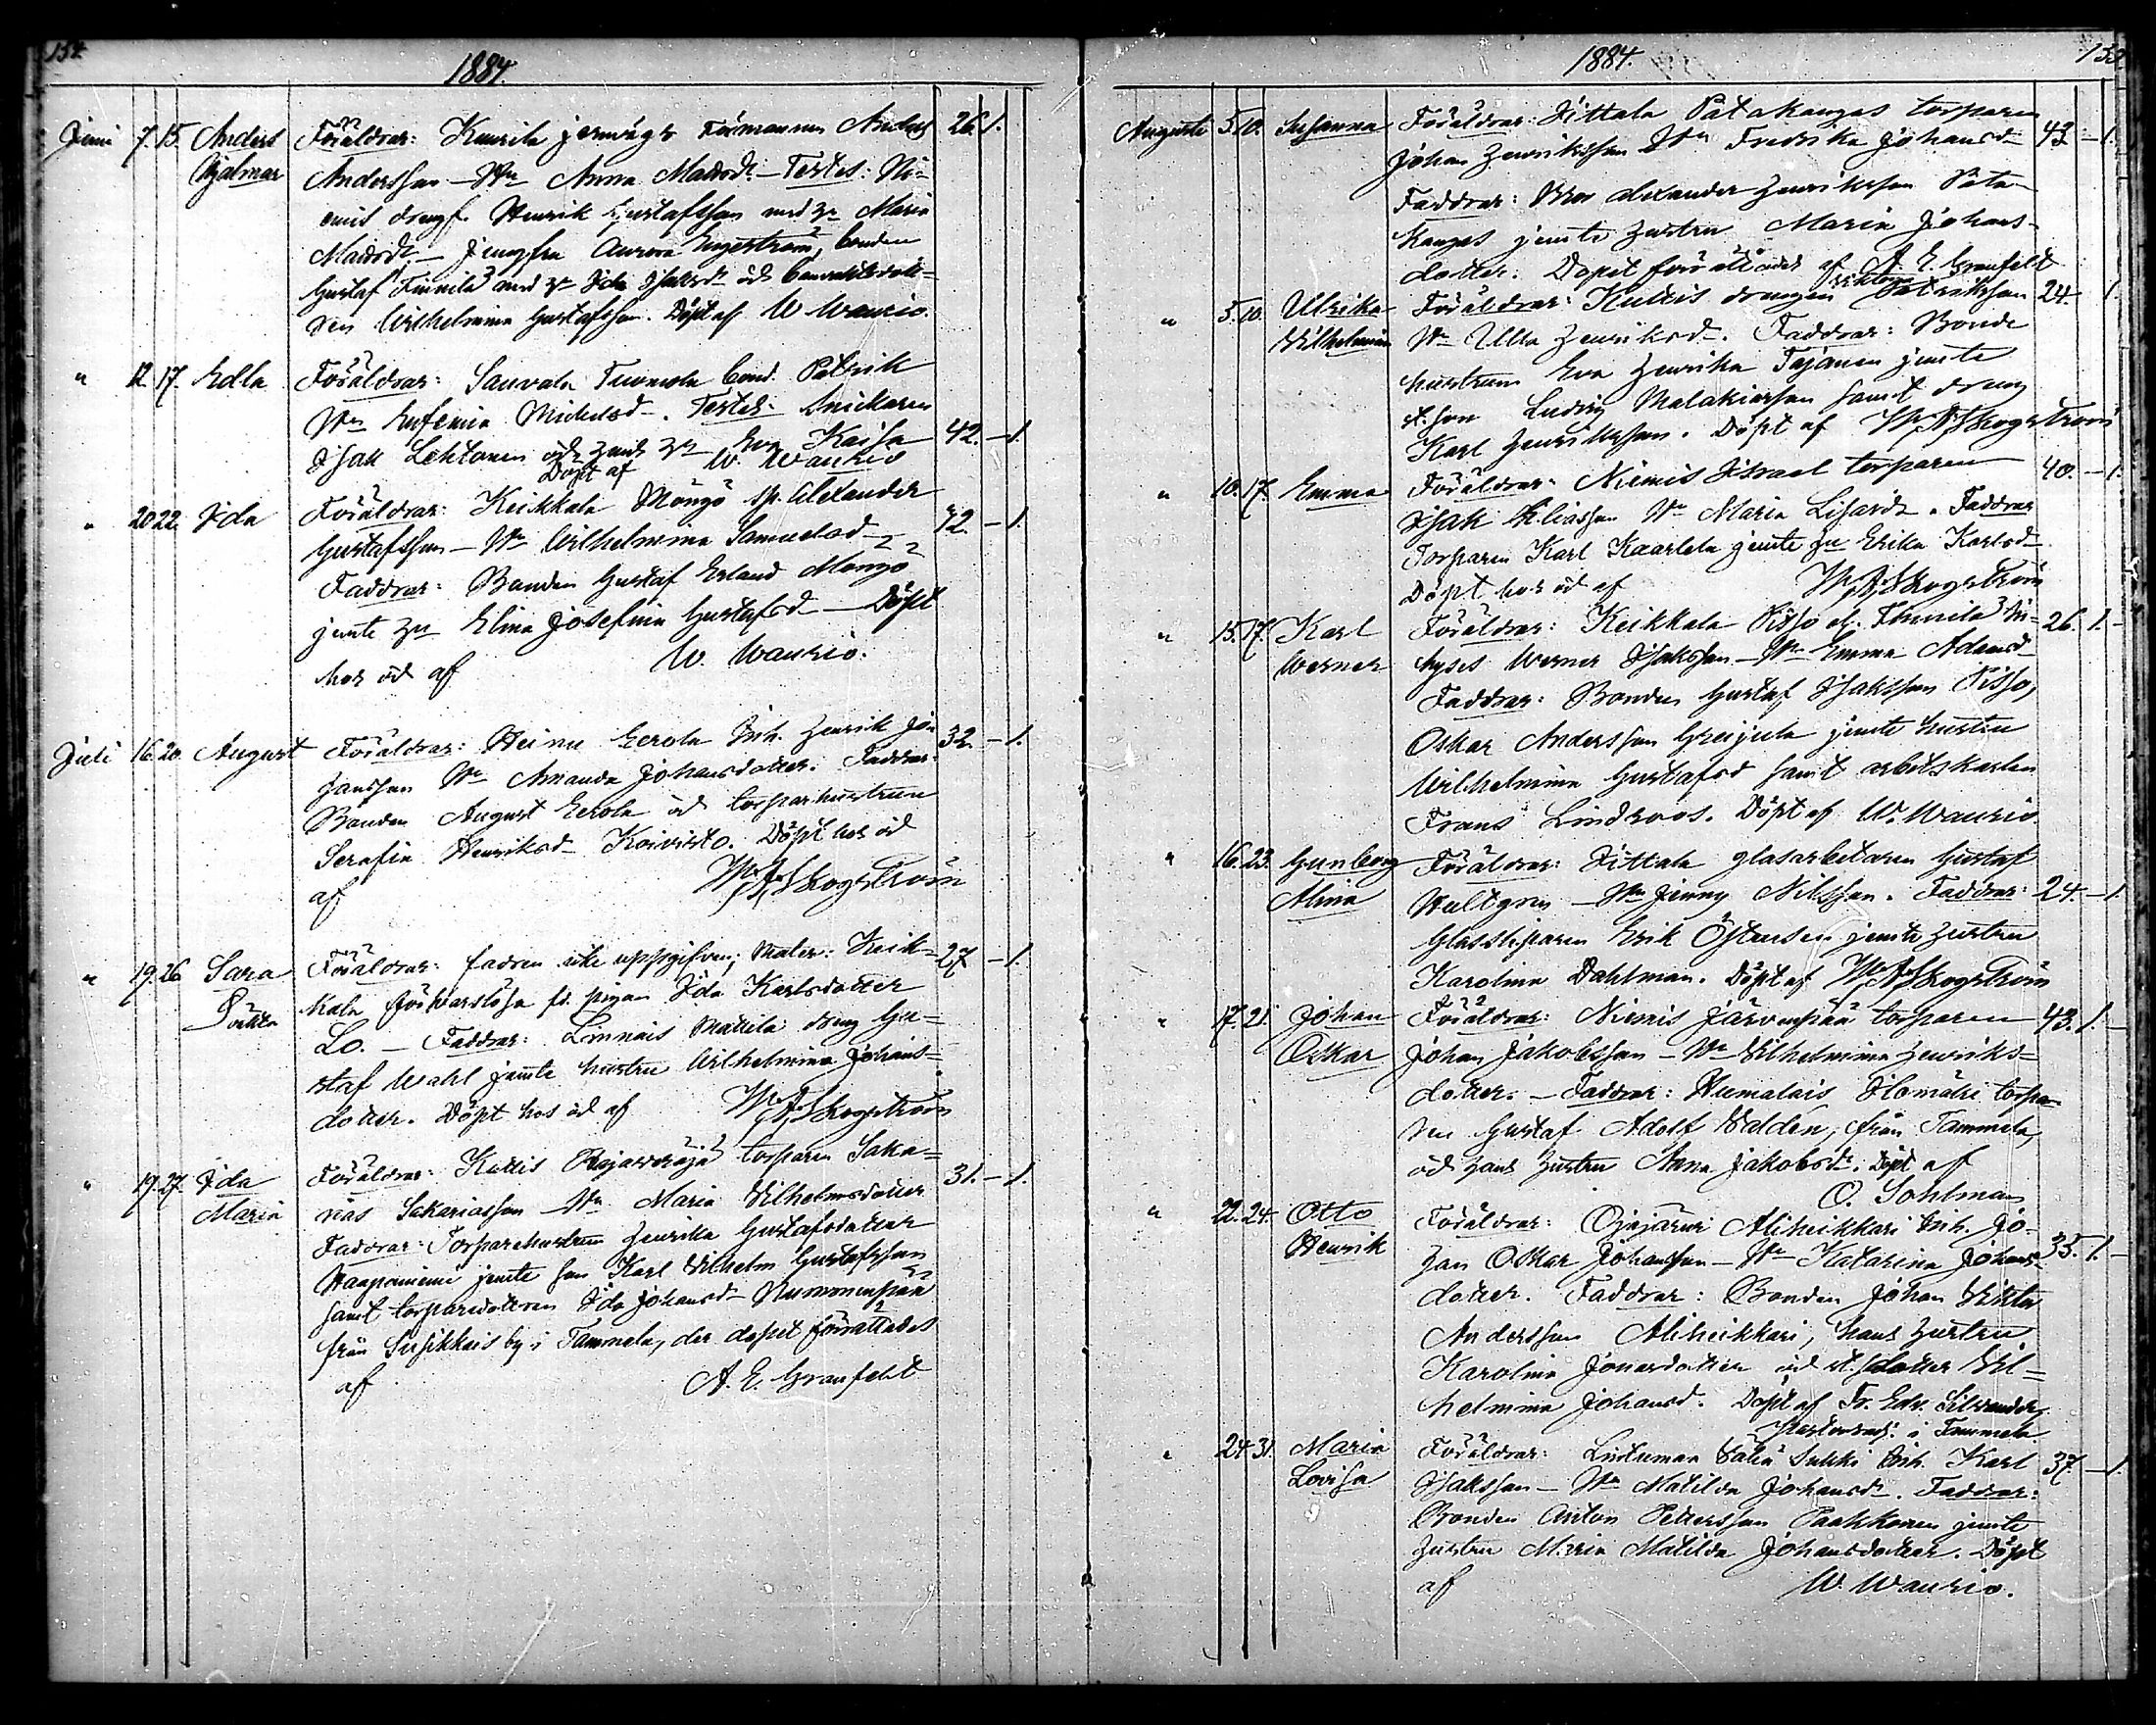 132
1884.
Juni 7. 15. Anders Föräldrar: Kaurila jernvägs Förmannen Anders 26. 1.
Hjalmar Andersson – Hu Anna Matsd. – Testes: Ni-
emis drengf. Henrik Gustafsson med h. Maria
Matsd. – Jungfru Aurora Engeström, bonden
Gustaf Finnilä med h. Ida Isaksd. och
Wilhelmina Gustafsson. Döpt af W. Waurio.
" 12. 17. Edla Föräldrar: Sauvala Tuomola bond. Patrik
Hu Eufemia Mickelsd. Testes: Snickaren
Isak Lehtonen och hans h. Eva Kaisa 42. – 1.
Döpt af W. Waurio
" 20 22. Ida Föräldrar: Keikkala Mongo Alexander
Gustafsson – Hu Wilhelmina Samuelsd. 42. – 1.
Faddrar: Bonden Gustaf Erland Mongo
jemte hu Elina Josefina Gustafsd – Döpt
hos öd af W. Waurio.
Juli 16. 20. August Föräldrar: Heinu Eerola Inh. Henrik Jo- 32. – 1.
hansson Hu Amanda Johansdotter. Faddrar:
Bonden August Eerola öd torparhustrun
Serafia Henriksd Koivisto. Döpt hos öd
af W. A. Skogström
" 19. 26. Sara Föräldrar: fadren icke uppgifven; Mater: Keik- 27 – 1.
kala försvarslösa fd. pigan Ida Karlsdotter
Lo. – Faddrar: Linnais Mattila dreng Gu-
staf Wahl jemte hustru Wilhelmina Johans-
dotter. Döpt hos öd af W. A. Skogström
" 19. 27. Ida Föräldrar: Kuttis torparen Saka- 31. – 1.
Maria rias Sakariasson – Hu Maria Vilhelmsdotter
Faddrar: Torparehustrun Henrika Gustafsdotter
Haapaniemi jemte son Karl Vilhelm Gustafsson
samt torparedotteren Ida Johansd Nummenpää
från Susikkais by i Tammela, der dopet förrättades
af A. E. Granfelt
1884. 133
Augusti 5. 10. Susanna Föräldrar: Iittala Patakangas torparen
Johan Henriksson Hu Fredrika Johansd 43 – 1.
Faddrar: Bror Alexander Henriksson Pata-
kangas jemte hustru Maria Johans-
dotter. Dopet förrättades af A. E. Granfelt
" 5. 10. Ulrika Föräldrar: Kuttis drengen Viktor Patriksson 24. 1.
Vilhelmina Hu Ulla Henriksd. Faddrar: Bonde
hustrun Eva Henrika Tajanen jemte
st.son Ludvig Malakiasson samt dreng
Karl Henriksson. Döpt af W. A. Skogström
" 10. 17. Emma Föräldrar: Niemis Israel torparen 40. – 1.
Isak Eliasson Hu Maria Lisard. Faddrar
Torparen Karl Kaarlela jemte hu Erika Karlsd
Döpt hos öd af W. A. Skogström
" 15. 17. Karl Föräldrar: Keikkala Pisso af. Finnilä In- 26. 1. –
Werner hyses Werner Isaksson – Hu Emma Adamsd
Faddrar: Bonden Gustaf Isaksson Pisso,
Oskar Andersson Greijula jemte hustru
Wilhelmina Gustafsd samt arbetskarlen
Frans Lindroos. Döpt af W. Waurio.
" 16. 23. Gunborg Föräldrar: Iittala glasarbetaren Gustaf
Alina Hultgren – Hu Jenny Nilsson. Faddrar: 24. – 1.
Glassliparen Erik Östensen jemte hustru
Karolina Dahlman. Döpt af W. A. Skogström
" 17. 21. Johan Föräldrar: Niemis Järvenpää torparen 43. 1. –
Oskar Johan Jakobsson – Hu Vilhelmina Henriks-
dotter. – Faddrar: Humalais Ilomäki torpa-
ren Gustaf Adolf Waldén, från Tammela,
öd hans hustru Anna Jakobsd. Döpt af
O. Sohlman
" 22. 24. Otto Föräldrar: Ojajärvi Aliheikkari Inh. Jo-
Henrik han Oskar Johansson – Hu Katarina Johans- 35. 1. –
dotter. Faddrar: Bonden Johan Viktor
Andersson Aliheikkari, hans hustru
Karolina Jonasdotter öd st.dotter Vil-
helmina Johansd. Döpt af Fr. Edv. Silvander,
Pastorsadj. i Tammela
" 24 31. Maria Föräldrar: Lintumaa Salia Sukki Inh. Karl 37. – 1.
Lovisa Isaksson – Hu Matilda Johansd. Faddrar:
Bonden Anton Pettersson Paakkonen jemte
hustru Maria Matilda Johansdotter. Döpt
af W. Waurio.